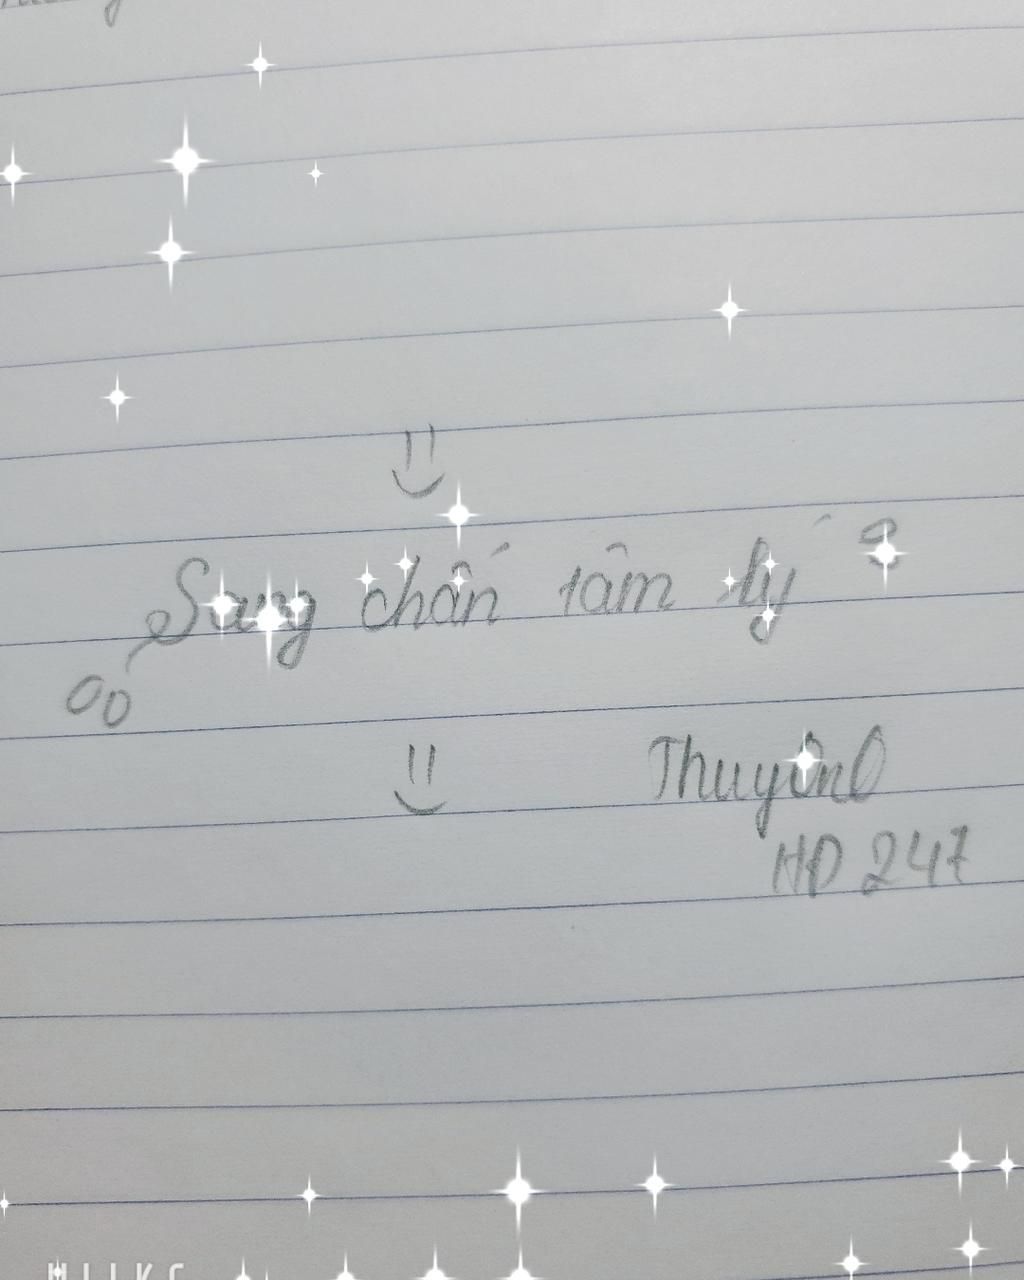 Sang chấn tâm lý
Thuyên
HD 247